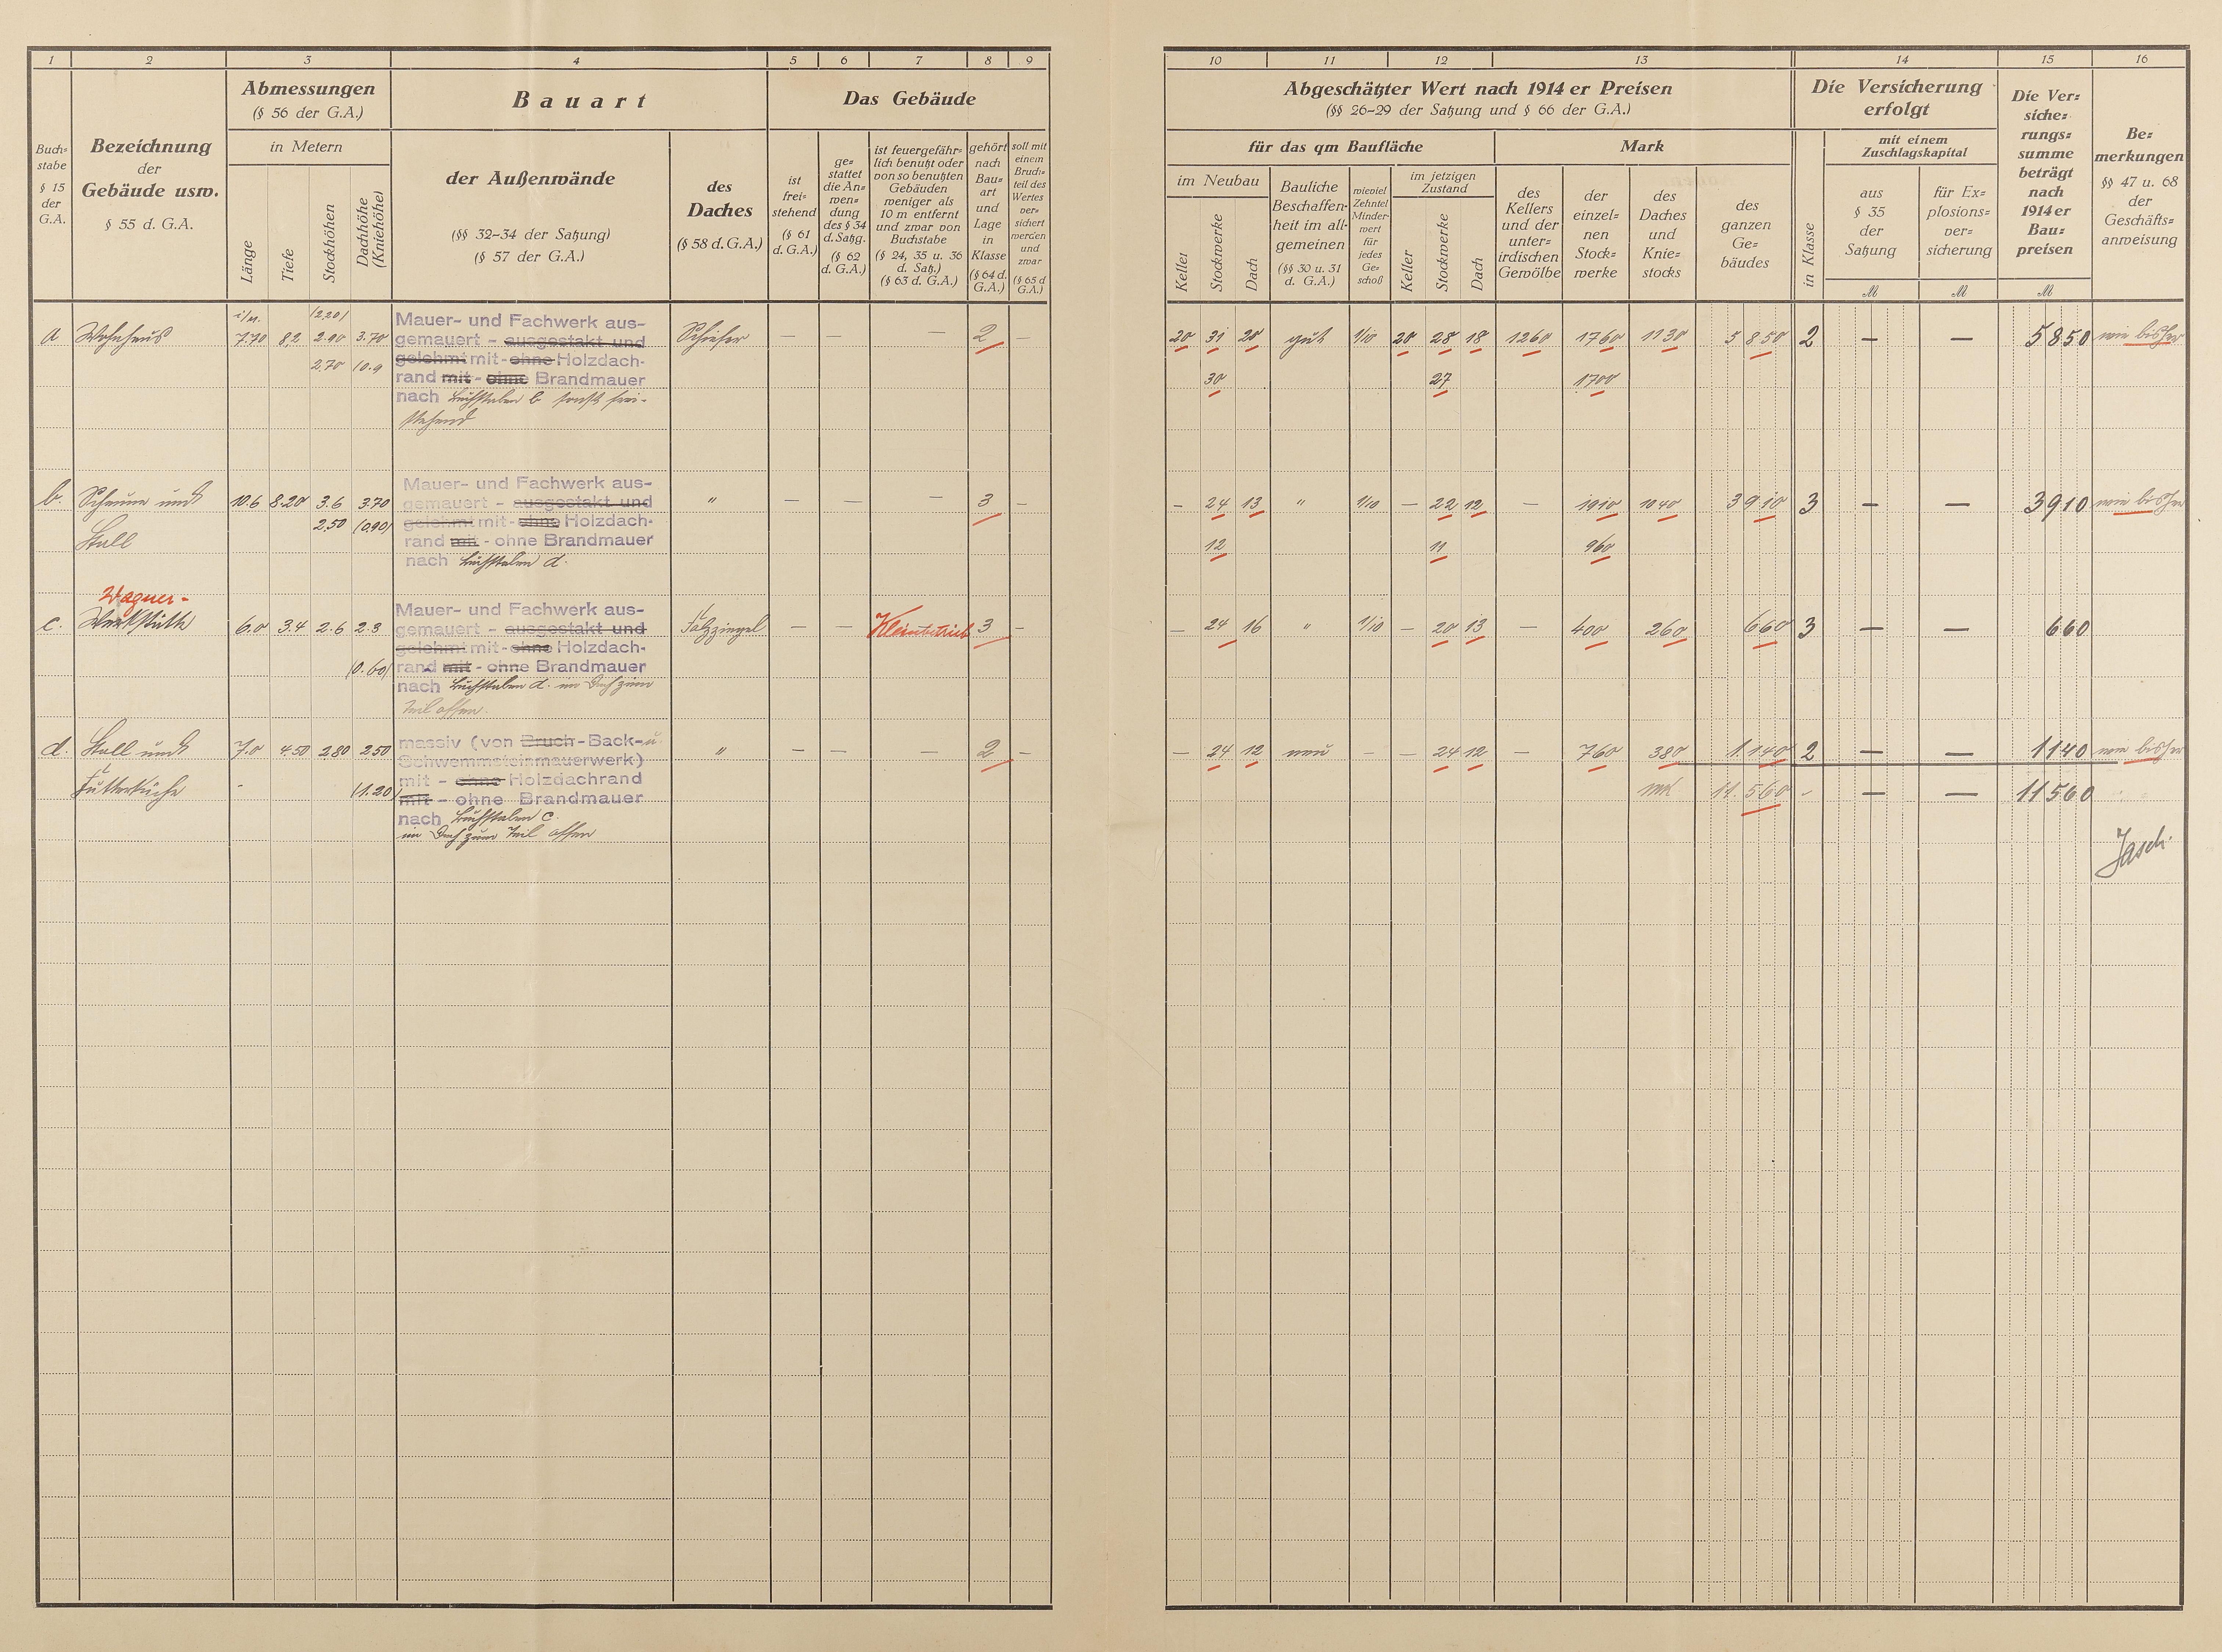 1 2 3 4 5 6 7 8 9
Abmessungen
(§ 56 der G.A.)
in Metern
Buch=
stabe
§ 15
der
G.A.
Bezeichnung
der
Gebäude usw.
§ 55 d. G.A.
Länge
Tiefe
Stockhöhen
Dachhöhe
(Kniehöhe)
Bauart
der Außenwände
(§§ 32-34 der Satzung)
(§ 57 der G.A.)
des
Daches
(§ 58 d. G.A.)
Das Gebäude
ist
frei=
stehend
(§ 61
d. G.A.)
ge=
stattet
die An=
wen=
dung
des § 34
d. Satzg.
(§ 62
d. G.A.)
ist feuergefähr=
lich benutzt oder
von so benutzten
Gebäuden
weniger als
10 m entfernt
und zwar von
Buchstabe
(§ 24, 35 u. 36
d. Satz.)
(§ 63 d. G.A.)
gehört
nach
Bau=
art
und
Lage
in
Klasse
(§ 64 d.
G.A.)
soll mit
einem
Bruch=
teil des
Wertes
ver=
sichert
werden
und
zwar
(§ 65 d
G.A.)
i/M. (2,20)
a Wohnhaus 7.70 8,2 2.90 3.70
2,70 (0.9
Mauer- und Fachwerk aus-
gemauert - ausgestakt und
gelehmt mit - ohne Holzdach-
rand mit - ohne Brandmauer
nach Buchstaben b sonst frei-
stehend
Schiefer — — — 2 —
b. Scheune und 10.6 8.20 3.6 3.70
Stall 2,50 (0,90)
Mauer- und Fachwerk aus-
gemauert - ausgestakt und
gelehmt mit - ohne Holzdach-
rand mit - ohne Brandmauer
nach Buchstaben d.
" — — — 3 —
Wagner-
c. Werkstätte 6.0 3.4 2.6 2.3
(0.60)
Mauer- und Fachwerk aus-
gemauert - ausgestakt und
gelehmt mit - ohne Holzdach-
rand mit - ohne Brandmauer
nach Buchstaben d. im Dach zum
Teil offen.
Falzziegel — — Kleinbetrieb 3 —
d. Stall und 7.0 4.50 2.80 2.50
Futterküche - (1.20)
massiv (von Bruch - Back- u.
Schwemmsteinmauerwerk)
mit - ohne Holzdachrand
mit - ohne Brandmauer
nach Buchstaben c.
im Dach zum Teil offen
" — — — 2 —
10 11 12 13 14 15 16
Abgeschätzter Wert nach 1914 er Preisen
(§§ 26-29 der Satzung und § 66 der G.A.)
für das qm Baufläche
Mark
im Neubau
Keller
Stockwerke
Dach
Bauliche
Beschaffen=
heit im all=
gemeinen
(§§ 30 u. 31
d. G.A.)
wieviel
Zehntel
Minder=
wert
für
jedes
Ge=
schoß
im jetzigen
Zustand
Keller
Stockwerke
Dach
des
Kellers
und der
unter=
irdischen
Gewölbe
der
einzel=
nen
Stock=
werke
des
Daches
und
Knie=
stocks
des
ganzen
Ge=
bäudes
Die Versicherung
erfolgt
in Klasse
mit einem
Zuschlagskapital
aus
§ 35
der
Satzung
für Ex=
plosions=
ver=
sicherung
M M M
Die Ver=
siche=
rungs=
summe
beträgt
nach
1914 er
Bau=
preisen
Be=
merkungen
§§ 47 u. 68
der
Geschäfts=
anweisung
20 31 20 gut 1/10 20 28 18 1260 1760 1130 5850 2 — — 5850 wie bisher
30 27 1700
— 24 13 " 1/10 — 22 12 — 1910 1040 3910 3 3910 wie bisher
12 11 960
— 24 16 " 1/10 — 20 13 — 400 260 660 3 — — 660
— 24 12 neu - — 24 12 — 760 380 1140 2 — — 1140 wie bisher
11.560 - — — 11560
Jasch.